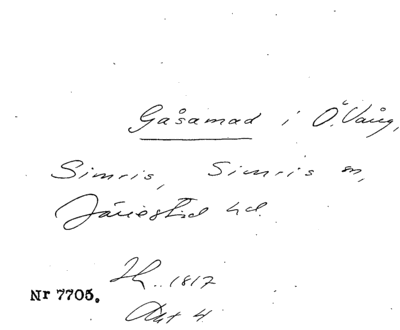 Gåsamad i Ö. Vång,
Simris, Simris sn,
Järrestad hd.
1817
Nr 7705.
Akt 4